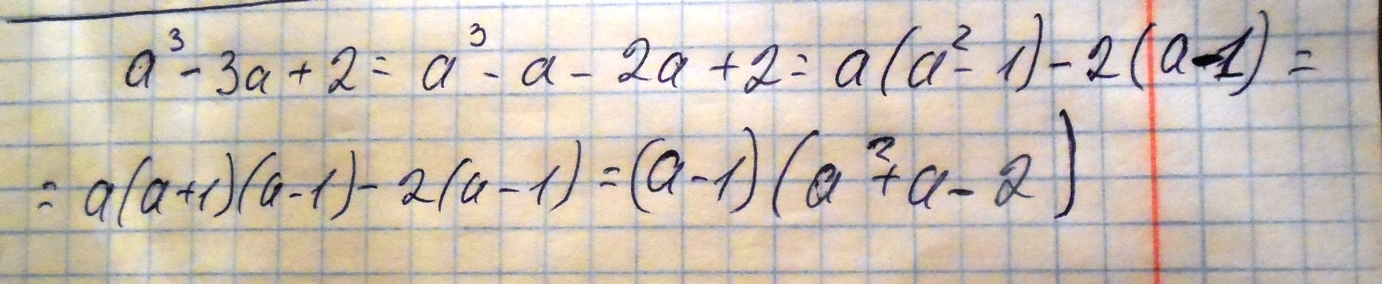 a³ - 3a + 2 = a³ - a - 2a + 2 = a(a² - 1) - 2(a - 1) =
= a(a+1)(a-1) - 2(a-1) = (a-1)(a² + a - 2)